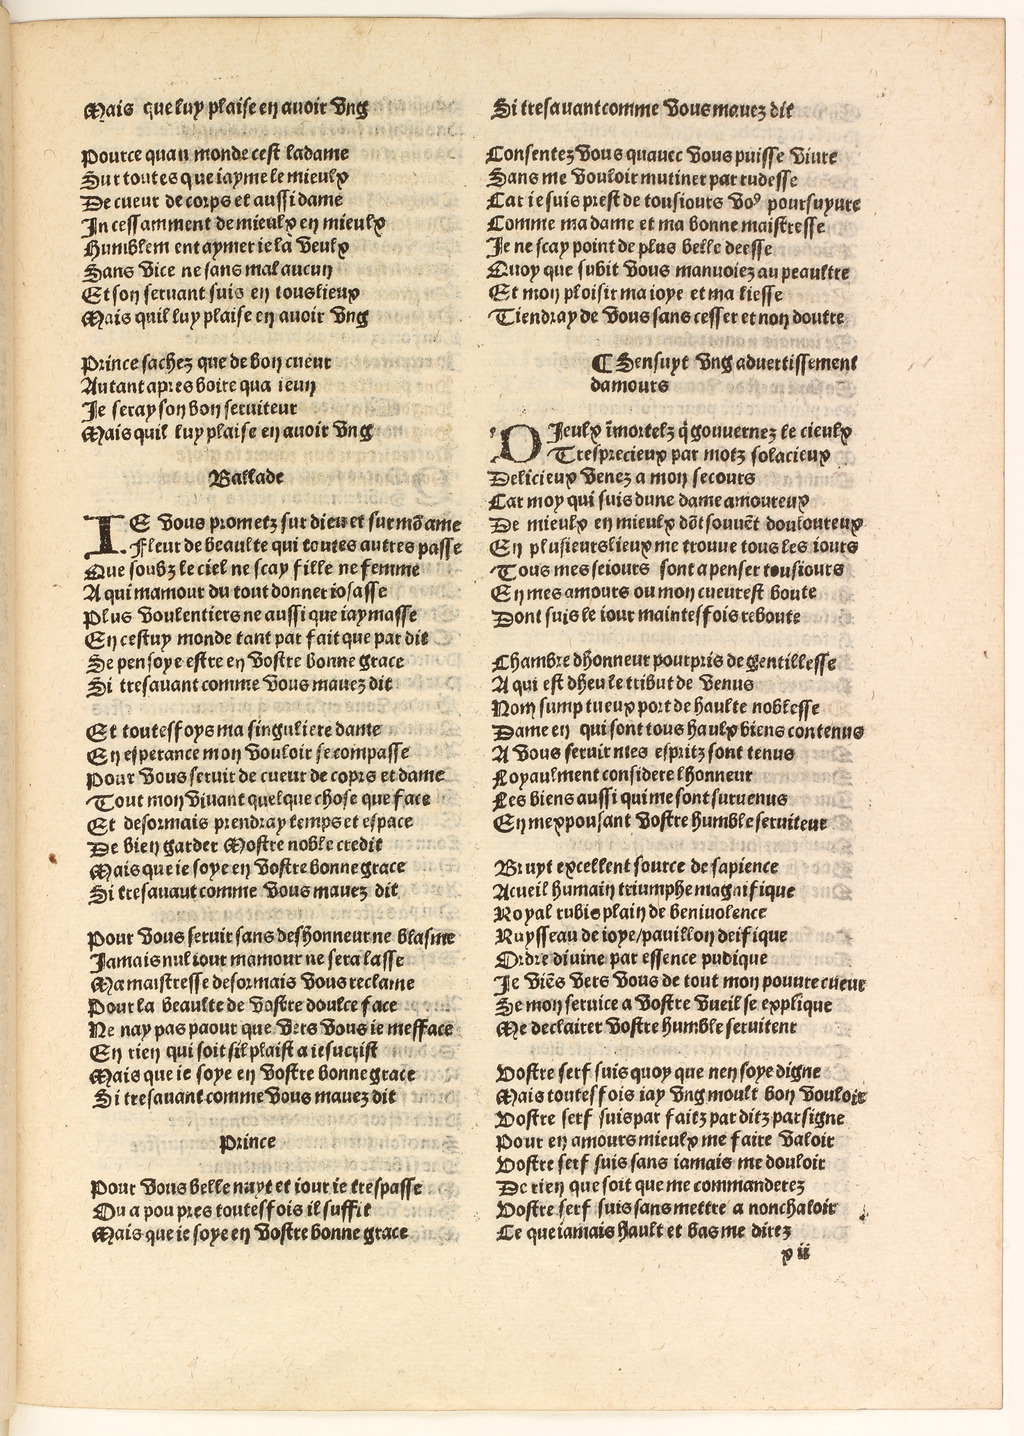 Mais que luy plaise en auoir vng
Pource quau monde cest ladame
Sur toutes que iayme le mieulx
De cueur de corps et aussi dame
Incessamment de mieulx en mieulx
Humblement aymer ie la veulx
Sans vice ne sans mal aucun
Et son seruant suis en tous lieux
Mais quil luy plaise en auoir vng
Prince sachez que de bon cueur
Autant apres boire qua ieun
Je seray son bon seruiteur
Mais quil luy plaise en auoir vng
Ballade
IE vous prometz sur dieu et sur mõ ame
Fleur de beaulte qui toutes autres passe
Que soubz le ciel ne scay fille ne femme
A qui mamour du tout donner iosasse
Plus voulentiers ne aussi que iaymasse
En cestuy monde tant par fait que par dit
Se pensoye estre en vostre bonne grace
Si tresauant comme vous mauez dit
Et toutesfoys ma singuliere dame
En esperance mon vouloir se compasse
Pour vous seruir de cueur de coprs et dame
Tout mon viuant quelque chose que face
Et desormais prendray temps et espace
De bien garder Mostre noble credit
Mais que ie soye en vostre bonne grace
Si tresauaut comme vous mauez dit
Pour vous seruir sans deshonneur ne blasme
Jamais nul iour mamour ne sera lasse
Ma maistresse desormais vous reclame
Pour la beaulte de vostre doulce face
Ne nay pas paour que vers vous ie mefface
En rien qui soit sil plaist a iesucrist
Mais que ie soye en vostre bonne grace
Si tresauant comme vous mauez dit
Prince
Pour vous belle nuyt et iour ie trespasse
Ou a pou pres toutesfois il suffit
Mais que ie soye en vostre bonne grace
Si tresauant comme vous mauez dit
Consentez vous quauec vous puisse viure
Sans me vouloir mutiner par rudesse
Car ie suis prest de tousiours voꝰ poursuyure
Comme ma dame et ma bonne maistresse
Je ne scay point de plus belle deesse
Quoy que subit vous manuoiez au peaultre
Et mon ploisir ma ioye et ma liesse
Tiendray de vous sans cesser et non doutre
⸿ Sensuyt vng aduertissement
damours
DIeulx ĩmortelz q̃ gouuernez le cieulx
Tresprecieux par motz solacieux
Delicieux venez a mon secours
Car moy qui suis dune dame amoureux
De mieulx en mieulx dõt souuẽt douloureux
En plusieurs lieux me trouue tous les iours
Tous mes seiours sont a penser tousiours
En mes amours ou mon cueur est boute
Dont suis le iour maintesfois reboute
Chambre dhonneur pourpris de gentillesse
A qui est dheu le tribut de Venus
Nom sumptueux port de haulte noblesse
Dame en qui sont tous haulx biens contenus
A vous seruir mes espritz sont tenus
Loyaulment considere lhonneur
Les biens aussi qui me sont suruenus
En mexpousant vostre humble seruiteur
Bruyt excellent source de sapience
Acueil humain triumphe magnifique
Royal rubis plain de beniuolence
Ruysseau de ioye/pauillon deifique
Ordre diuine par essence pudique
Je viẽs vers vous de tout mon pouure cueur
Se mon seruice a vostre vueil se explique
Me declairer vostre humble seruiteur
Vostre serf suis quoy que nen soye digne
Mais toutesfois iay vng moult bon vouloir
Vostre serf suis par faitz par ditz par signe
Pour en amours mieulx me faire valoir
Vostre serf suis sans iamais me douloir
De rien que soit que me commanderez
Vostre serf suis sans mettre a nonchaloir
Ce que iamais hault et bas me direz
x ii